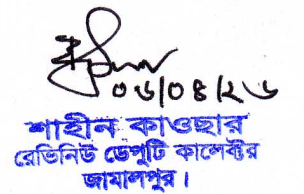 ০৬/০৪/২৬
শাহীন কাওছার
রেভিনিউ ডেপুটি কালেক্টর
জামালপুর।